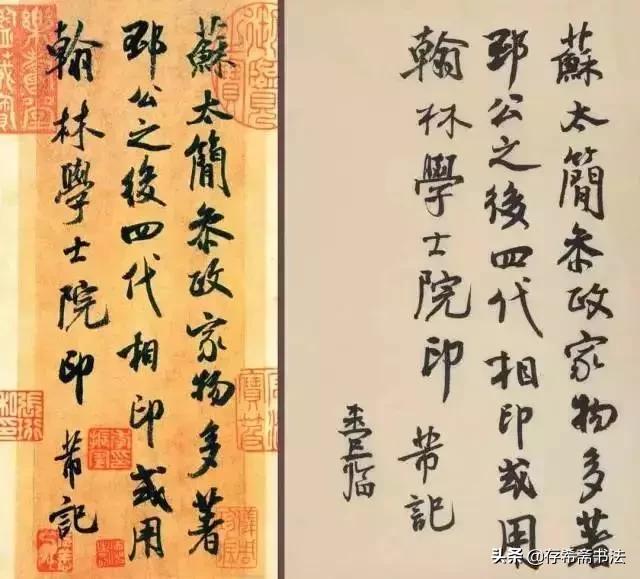 蘇太簡叅政家物多著
邳公之後四代相印或用
翰林學士院印 芾記
蘇太簡叅政家物多著
邳公之後四代相印或用
翰林學士院印 芾記
临
头条 @存希斋书法